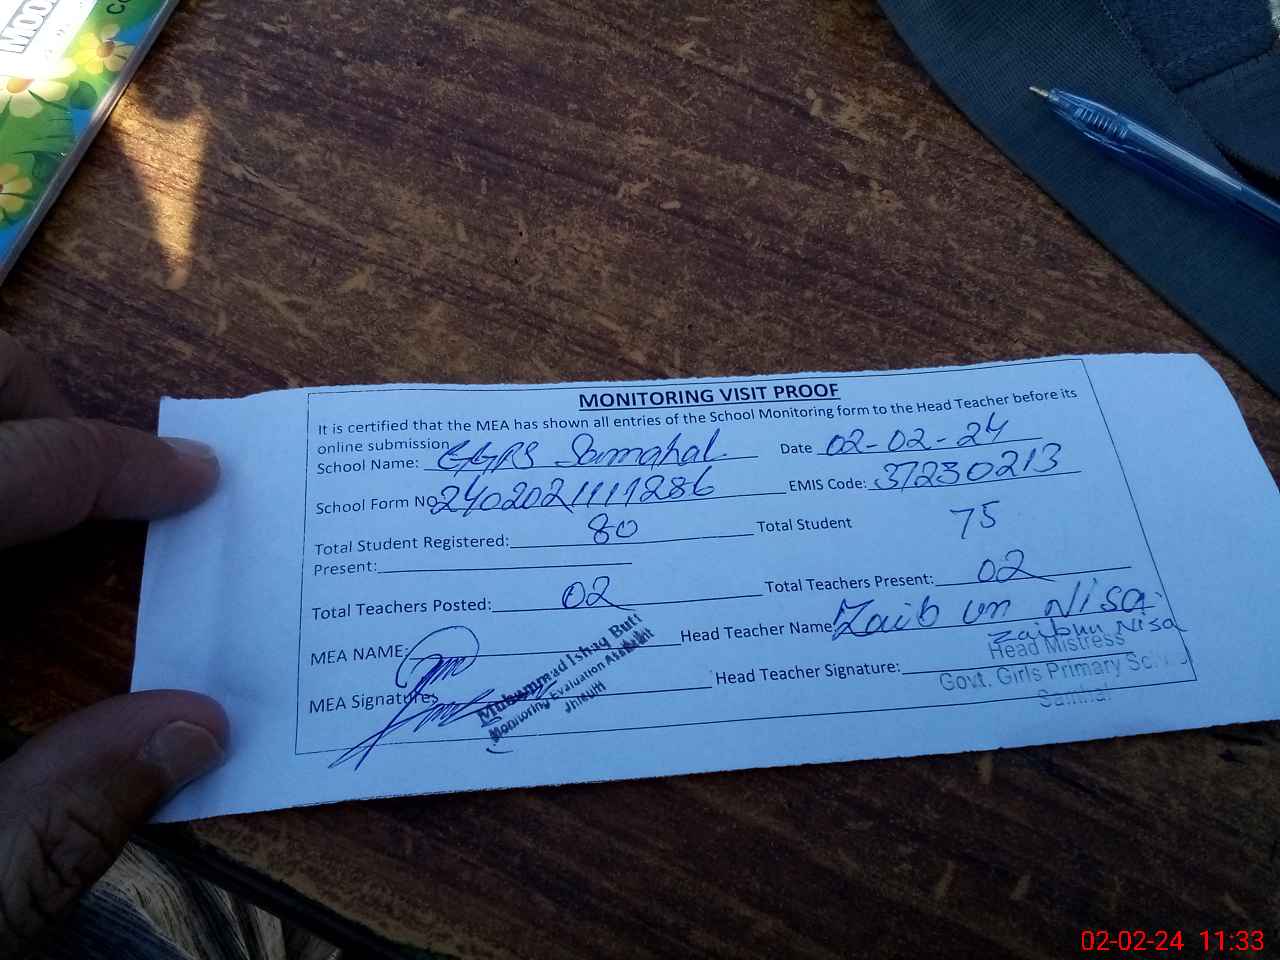 MOO
CO
MONITORING VISIT PROOF
It is certified that the MEA has shown all entries of the School Monitoring form to the Head Teacher before its
online submission
School Name: GGPS Samahal Date 02-02-24
School Form NO 2402021111286 EMIS Code: 37230213
Total Student Registered: 80 Total Student 75
Present:
Total Teachers Posted: 02 Total Teachers Present: 02
MEA NAME: Head Teacher Name Zaib un Nisa
MEA Signatures Head Teacher Signature: Zaibun Nisa
Muhammad Ishaq Butt
Monitoring Evaluation Assistant
Jhelum
Head Mistress
Govt. Girls Primary
02-02-24 11:33